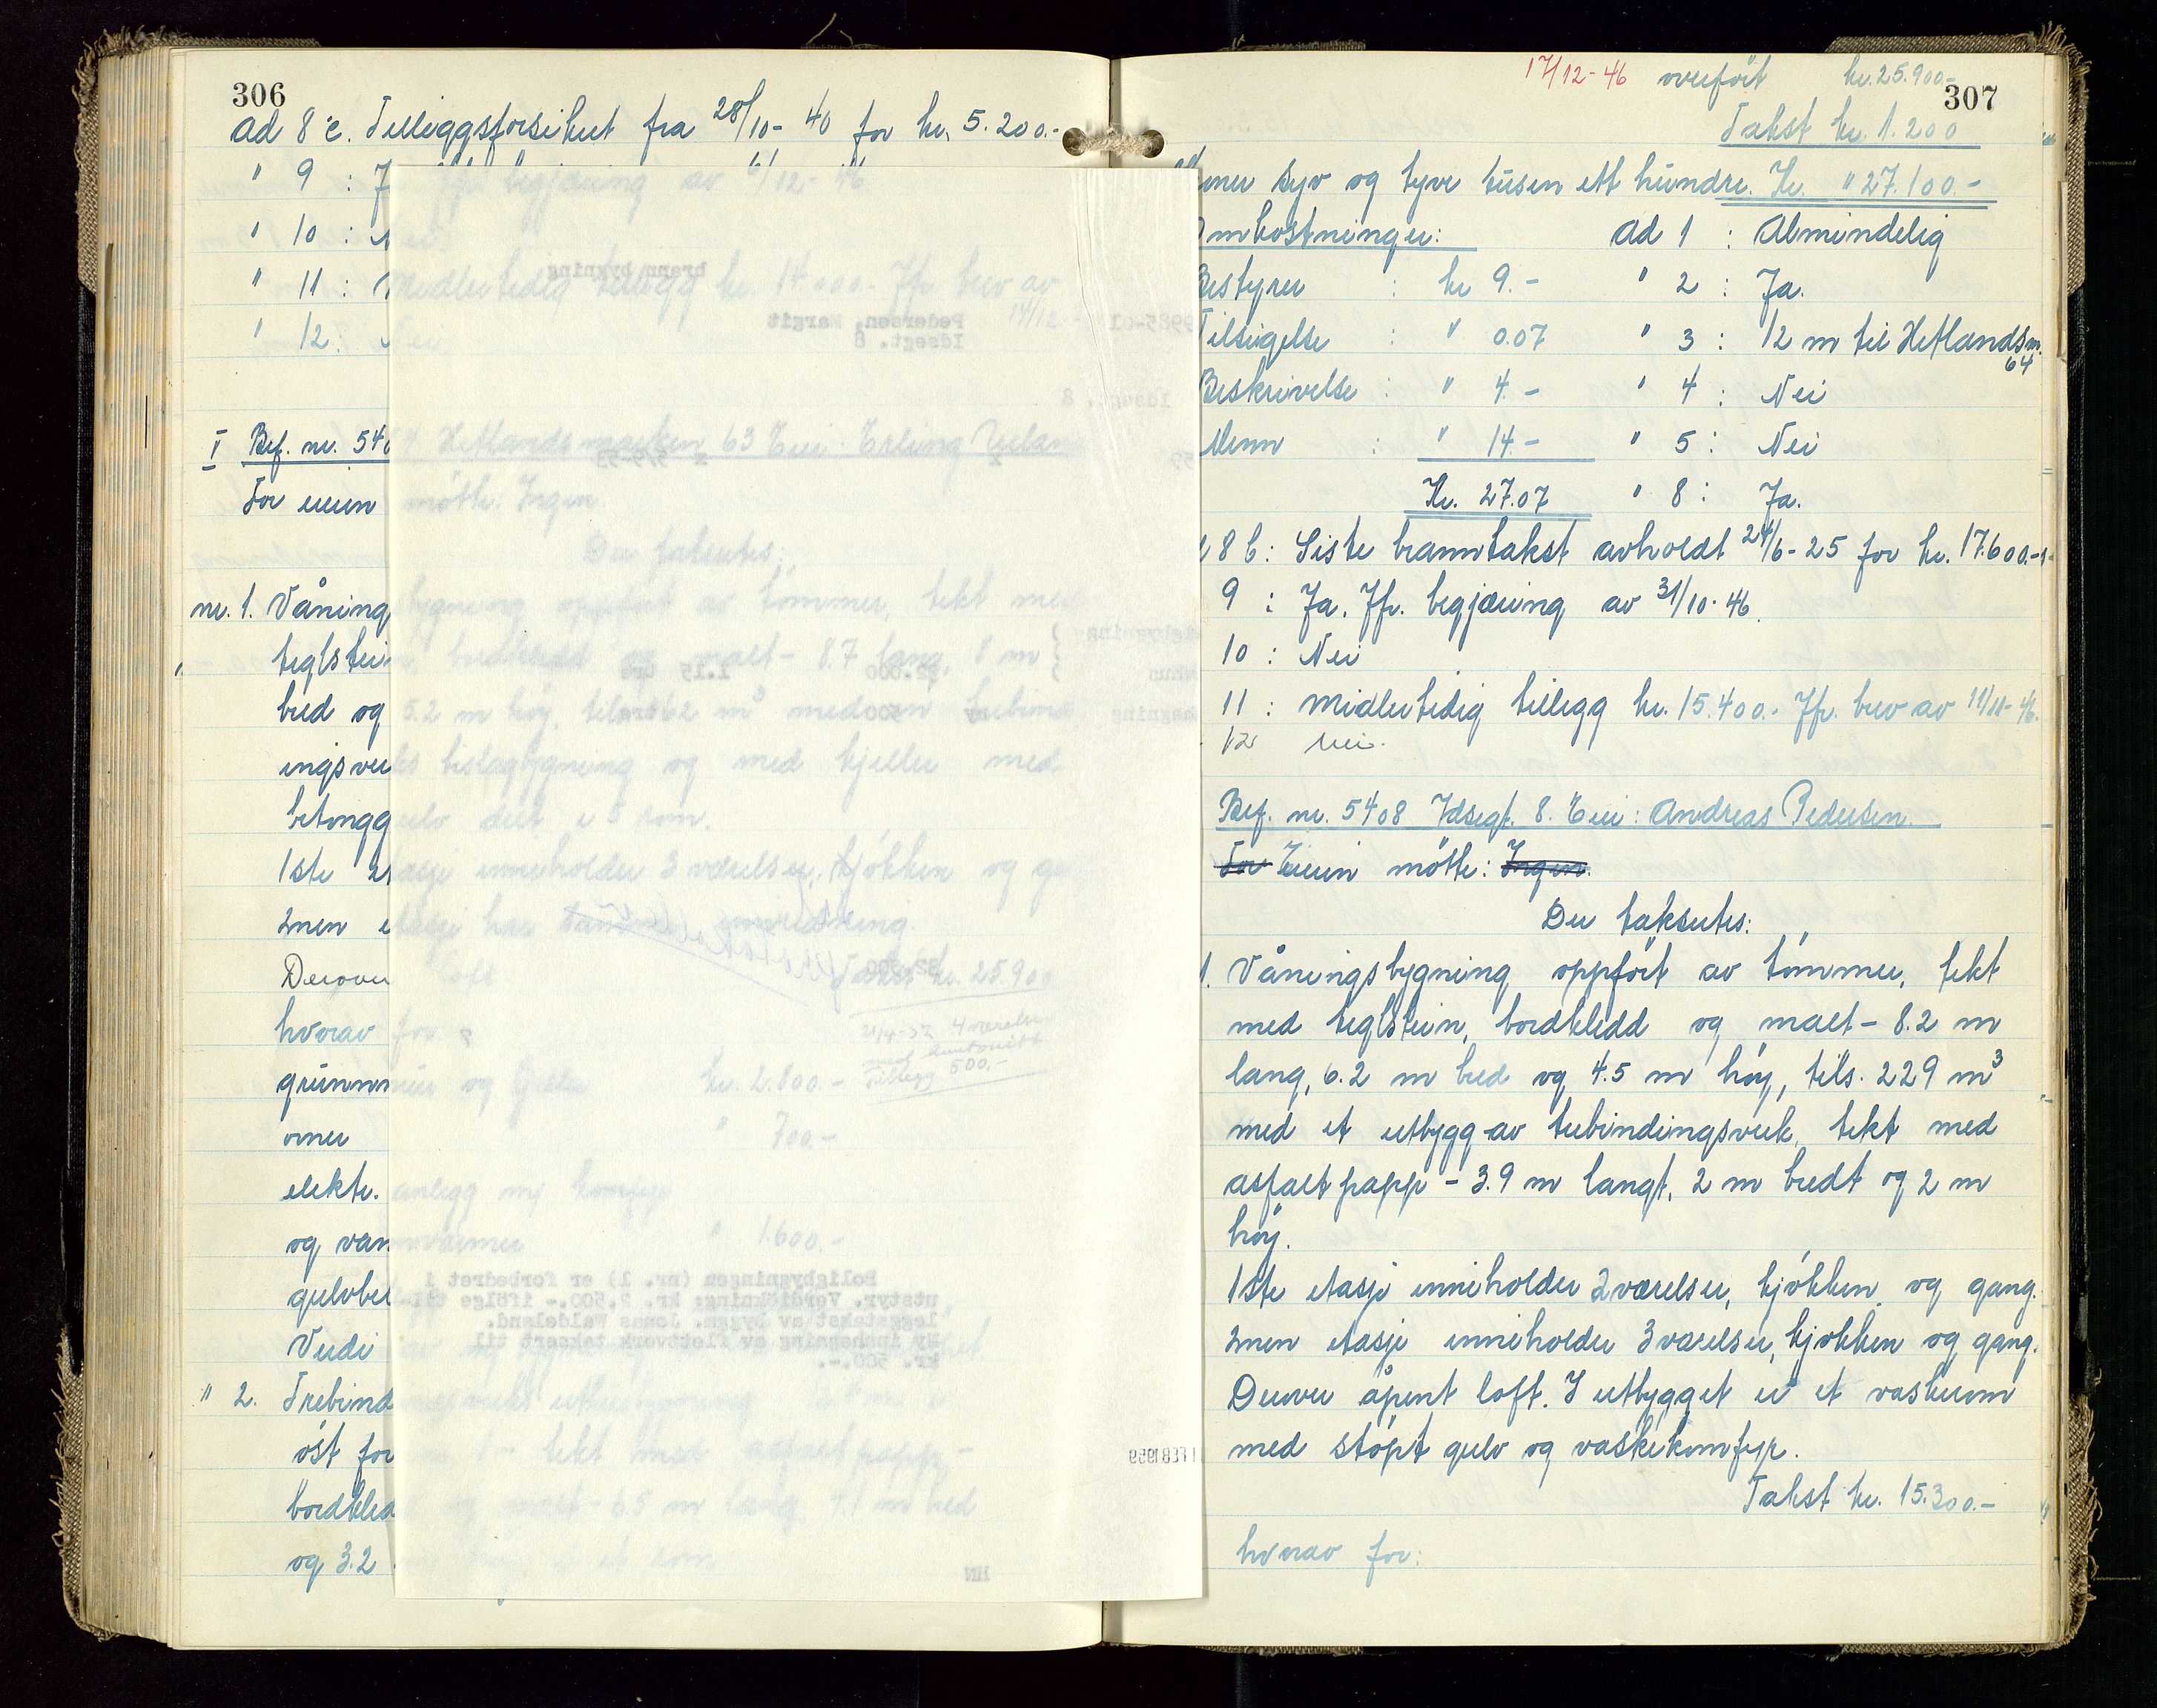 306
ad 8 c. Tilleggsforsikret fra 28/10- 40 for kr. 5.200.-
" 9 : Jfr. begjæring av 6/12- 46.
" 10 : Nei
" 11 : Midlertidig tillegg kr. 14.000.- Jfr. brev av
14/12
" 12 : Nei
I Bef. nr. 540 Hetlandsmarken 63 Eier: Erling
For eieren møtte: Ingen.
Der takseres:
nr. 1. Våningsbygning oppført av tømmer, tekt med
teglstein, bordkledd og malt - 8.7 lang, 8 m
bred og 5.2 m høy, tils. 362 m³ med en trebind
ingsverks bislagbygning og med kjeller med
betonggulv delt i 5 rom.
1ste etasje inneholder 3 værelser, kjøkken og
2nen etasje har innredning.
Derover loft
Takst kr. 25.900
hvorav for
21/4-52 4 værelser
med
Tillegg 500,-
grunnmur og kjeller kr. 2.800.-
ovner " 700.-
elektr. anlegg m/ komfyr
og vannvarmer " 1.600.-
gulvbel
Verdi av
" 2. Trebindingsverks uthusbygning
øst for nr. 1 - tekt med asfaltpapp -
bordkledd og malt - 6.5 m lang 4.1 m bred
og 3.2 m høy, et rom
brann bygning
Pedersen, Margit
Idsegt. 8
Idsegt. 8
Boligbygningen (nr. 1) er forbedret i
utstyr. Verdiökning: kr. 2.500.- ifölge til-
leggstakst av byggm. Jonas Waldeland.
Ny innhegning av flettverk taksert til
kr. 500.-.
FEB 1959
HN
307
17/12- 46 overført kr. 25.900-
Takst kr. 1.200
ener syv og tyve tusen ett hundre. Kr. " 27.100.-
Omkostninger: Ad 1 : Almindelig
Bestyrer : kr 9.- " 2 : Ja.
Tilsigelse : " 0.07 " 3 : 12 m til Hetlandsm.
64
Beskrivelse : " 4.- " 4 : Nei
Menn : " 14.- " 5 : Nei
Kr. 27.07 " 8 : Ja.
8 b : Siste branntakst avholdt 24/6- 25 for kr. 17.600.-
9 : Ja. Jfr. begjæring av 31/10- 46.
10 : Nei
11 : Midlertidig tillegg kr. 15.400.- Jfr. brev av 11/11- 46.
12 Nei.
Bef. nr. 5408 Idsegt. 8. Eier: Andreas Pedersen.
For Eieren møtte: Ingen.
Der takseres:
1. Våningsbygning oppført av tømmer, tekt
med teglstein, bordkledd og malt - 8.2 m
lang, 6.2 m bred og 4.5 m høy, tils. 229 m³
med et utbygg av trebindingsverk, tekt med
asfaltpapp - 3.9 m langt, 2 m bredt og 2 m
høy.
1ste etasje inneholder 2 værelser, kjøkken og gang.
2nen etasje inneholder 3 værelser, kjøkken og gang.
Derover åpent loft. I utbygget er et vaskerom
med støpt gulv og vaskekomfyr.
Takst kr. 15.300.-
hvorav for: